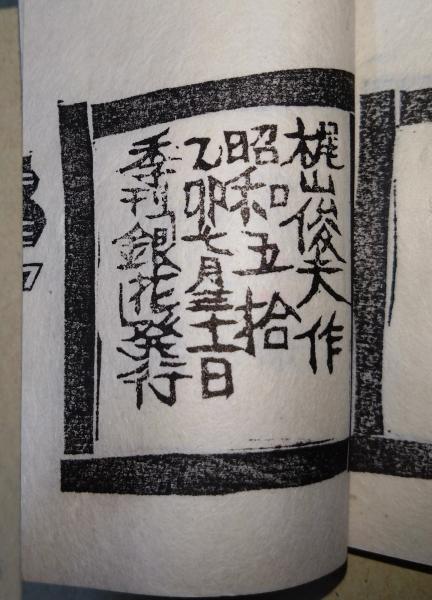 梶山俊夫作
昭和五拾
乙卯七月三十一日
季刊銀花発行